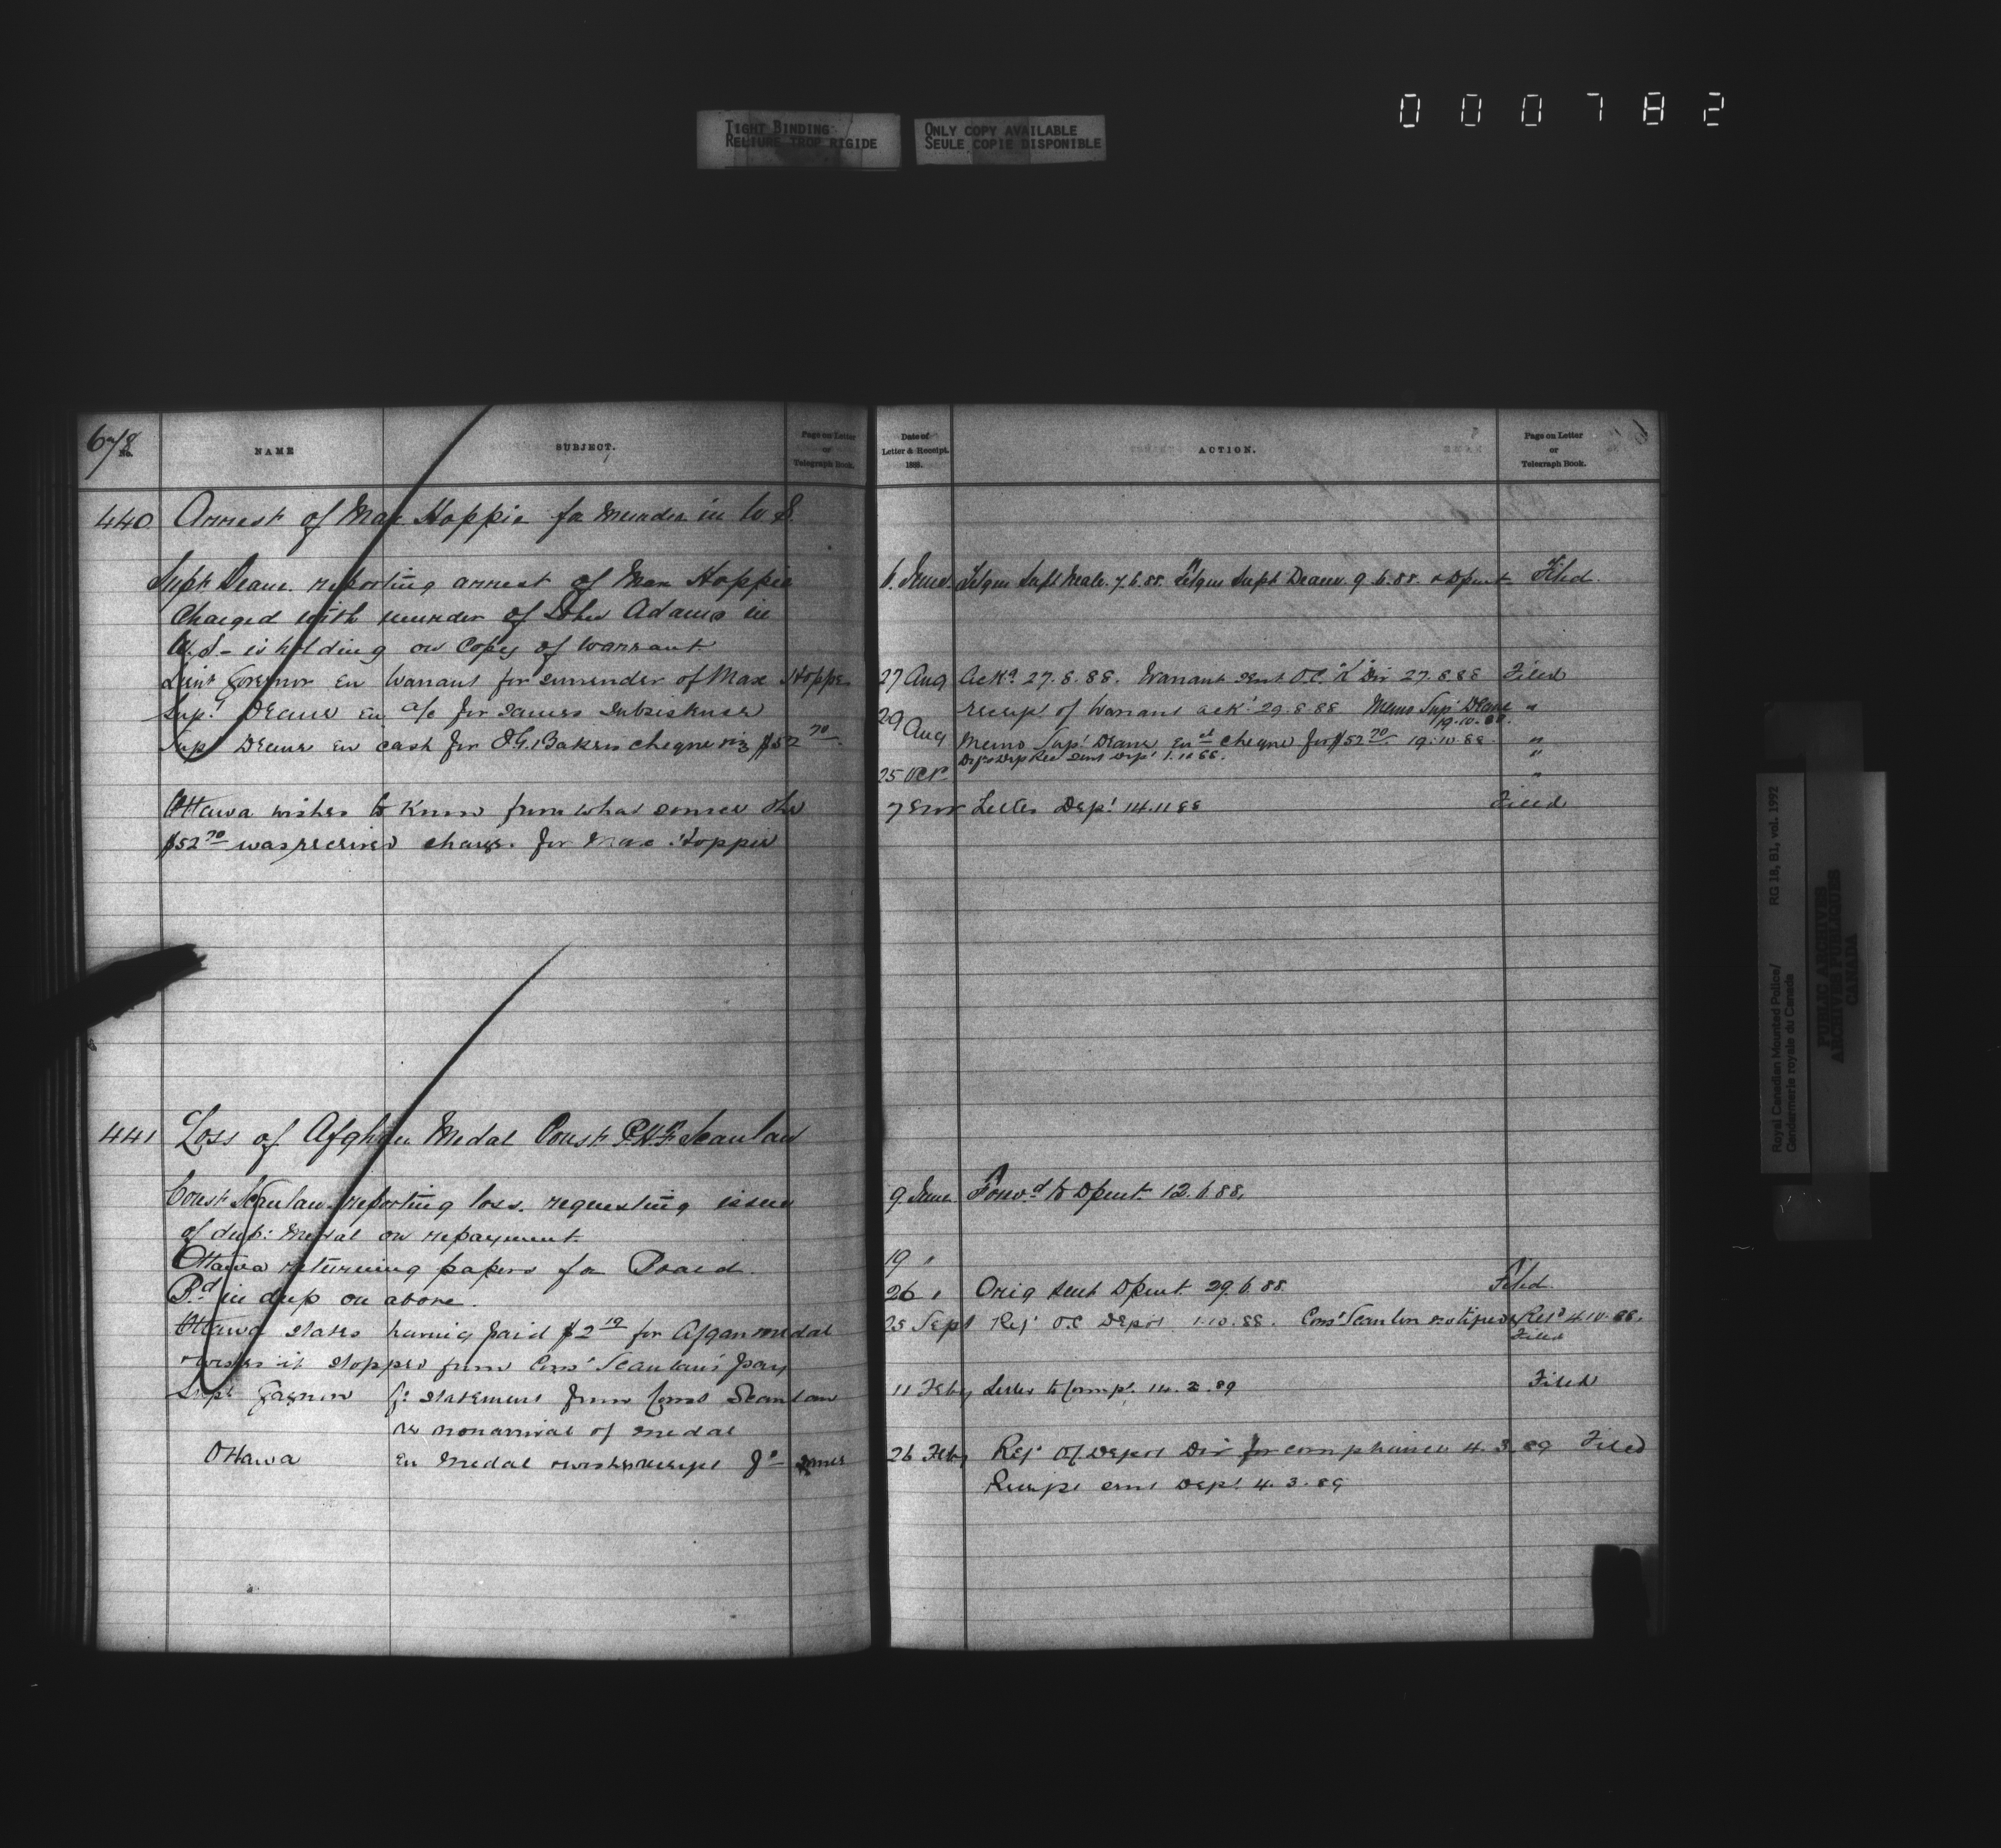 000782
TIGHT BINDING
RELIURE TROP RIGIDE
ONLY COPY AVAILABLE
SEULE COPIE DISPONIBLE
67/8
No.
NAME
SUBJECT.
Page on Letter
or
Telegraph Book.
440 Arrest of Max Hoppie for Murder in U S.
Supt Deane reporting arrest of Max Hoppie
Charged with murder of John Adams in
U.S - is holding on Copy of Warrant
Lieut Governor En Warrant for surrender of Max Hoppe
Supt Deane En a/c for
Supt Deane En cash for I.G. Bakers cheque viz $52 70
Ottawa wishes to know from what source the
$52 70 was received charges for Max Hoppie
441 Loss of Afghan Medal Const P.H.F. Scanlan
Const Scanlan reporting loss. requesting issue
of dup: Medal on repayment.
Ottawa returning papers for Board
Bd in dup on above.
Ottawa states having paid $2 19 for Afgan medal
wishes it stopped from Const Scanlan's pay
Supt Gagnon fr statement from Const Scanlan
re nonarrival of medal
Ottawa En Medal wishes receipt for same
Date of
Letter & Receipt.
1888.
ACTION.
Page on Letter
or
Telegraph Book.
6. June. Telgm Supt Neale. 7.6.88. Telgm Supt Deane. 9.6.88. & Dpmt Filed.
27 Aug Ackd 27.8.88. Warrant sent O.C. "K" Div 27.8.88 Filed
29 Aug receipt of Warrant ackd 29.8.88 Memo Supt Deane 19.10.88. "
Memo Supt Deane En cheque for $52 70 19.10.88 "
25 Oct "
7 Letter Dept 14.11.88 Filed
9. June Forwd to Dpmt. 12.6.88.
19 "
26 " Orig sent Dpmt 29.6.88. Filed
25 Sept Ref OC Depot 1.10.88. Const Scanlan notified Retd 4.10.88.
Filed
11 Feby Letter to Compt. 14.2.89 Filed
26 Feby Ref Of Depot Div for compliance 4.3.89 Filed
Receipt sent Dept 4.3.89
Royal Canadian Mounted Police/
Gendarmerie royale du Canada
RG 18, B1, vol. 1992
PUBLIC ARCHIVES
ARCHIVES PUBLIQUES
CANADA